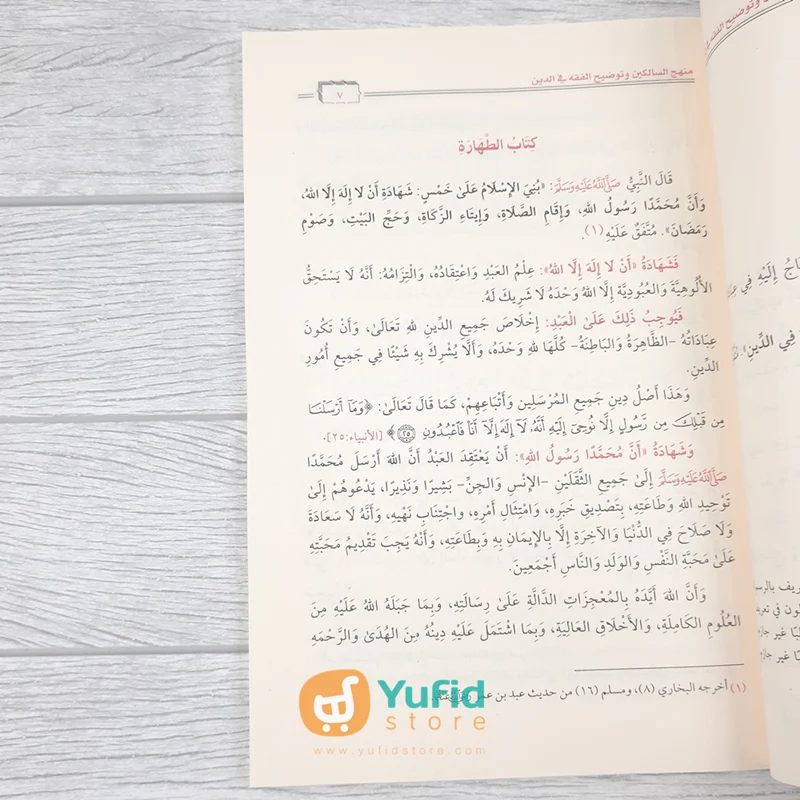 منهج السالكين وتوضيح الفقه في الدين
٧
كِتَابُ الطَّهَارَةِ
قَالَ النَّبِيُّ صَلَّى اللَّهُ عَلَيْهِ وَسَلَّمَ: «بُنِيَ الإِسْلَامُ عَلَىٰ خَمْسٍ: شَهَادَةِ أَنْ لا إِلَهَ إِلَّا اللهُ،
وَأَنَّ مُحَمَّدًا رَسُولُ اللهِ، وَإِقَامِ الصَّلَاةِ، وَإِيتَاءِ الزَّكَاةِ، وَحَجِّ البَيْتِ، وَصَوْمِ
رَمَضَانَ». مُتَّفَقٌ عَلَيْهِ (١).
فَشَهَادَةُ «أَنْ لا إِلَهَ إِلَّا اللهُ»: عِلْمُ العَبْدِ وَاعْتِقَادُهُ، وَالْتِزَامُهُ: أَنَّهُ لَا يَسْتَحِقُّ
الأُلُوهِيَّةَ وَالعُبُودِيَّةَ إِلَّا اللهُ وَحْدَهُ لَا شَرِيكَ لَهُ.
فَيُوجِبُ ذَلِكَ عَلَىٰ الْعَبْدِ: إِخْلَاصَ جَمِيعِ الدِّينِ لِلهِ تَعَالَىٰ، وَأَنْ تَكُونَ
عِبَادَاتُهُ -الظَّاهِرَةُ وَالبَاطِنَةُ- كُلُّهَا لِلهِ وَحْدَهُ، وَأَلَّا يُشْرِكَ بِهِ شَيْئًا فِي جَمِيعِ أُمُورِ
الدِّينِ.
وَهَذَا أَصْلُ دِينِ جَمِيعِ المُرْسَلِينَ وَأَتْبَاعِهِمْ، كَمَا قَالَ تَعَالَىٰ: ﴿وَمَآ أَرْسَلْنَا
مِن قَبْلِكَ مِن رَّسُولٍ إِلَّا نُوحِىٓ إِلَيْهِ أَنَّهُۥ لَآ إِلَٰهَ إِلَّآ أَنَا۠ فَٱعْبُدُونِ ٢٥﴾ [الأنبياء:٢٥].
وَشَهَادَةُ «أَنَّ مُحَمَّدًا رَسُولُ اللهِ»: أَنْ يَعْتَقِدَ العَبْدُ أَنَّ اللهَ أَرْسَلَ مُحَمَّدًا
صَلَّى اللَّهُ عَلَيْهِ وَسَلَّمَ إِلَىٰ جَمِيعِ الثَّقَلَيْنِ -الإِنْسِ وَالجِنِّ- بَشِيرًا وَنَذِيرًا، يَدْعُوهُمْ إِلَىٰ
تَوْحِيدِ اللهِ وَطَاعَتِهِ، بِتَصْدِيقِ خَبَرِهِ، وَامْتِثَالِ أَمْرِهِ، واجْتِنَابِ نَهْيِهِ، وَأَنَّهُ لَا سَعَادَةَ
وَلَا صَلَاحَ فِي الدُّنْيَا وَالآخِرَةِ إِلَّا بِالإِيمَانِ بِهِ وَبِطَاعَتِهِ، وَأَنَّهُ يَجِبُ تَقْدِيمُ مَحَبَّتِهِ
عَلَىٰ مَحَبَّةِ النَّفْسِ وَالوَلَدِ وَالنَّاسِ أَجْمَعِينَ.
وَأَنَّ اللهَ أَيَّدَهُ بِالمُعْجِزَاتِ الدَّالَّةِ عَلَىٰ رِسَالَتِهِ، وَبِمَا جَبَلَهُ اللهُ عَلَيْهِ مِنَ
العُلُومِ الكَامِلَةِ، وَالأَخْلَاقِ العَالِيَةِ، وَبِمَا اشْتَمَلَ عَلَيْهِ دِينُهُ مِنَ الهُدَىٰ وَالرَّحْمَةِ
(١) أخرجه البخاري (٨)، ومسلم (١٦) من حديث عبد بن عمر
Yufid
store
www.yufidstore.com
وتوضيح الفقه
إِلَيْهِ فِي
فِي الدِّينِ